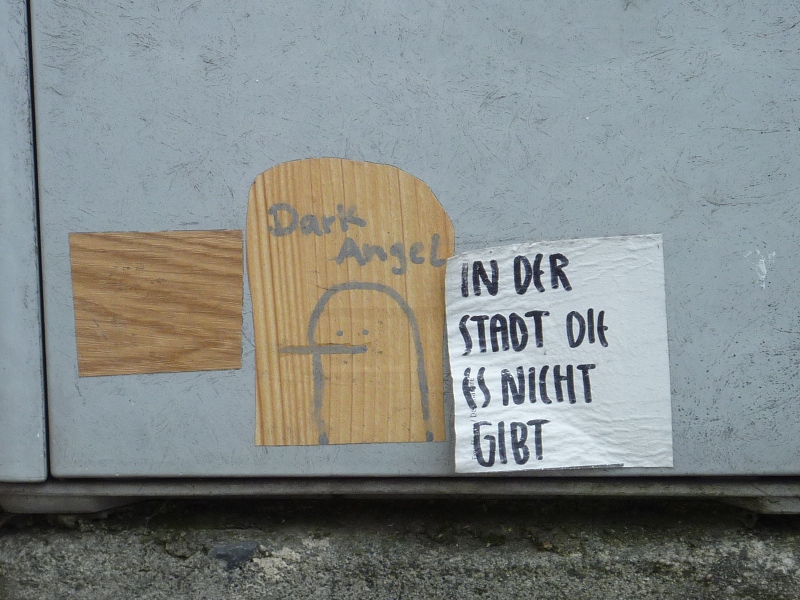 Dark
Angel
IN DER
STADT DIE
ES NICHT
GIBT